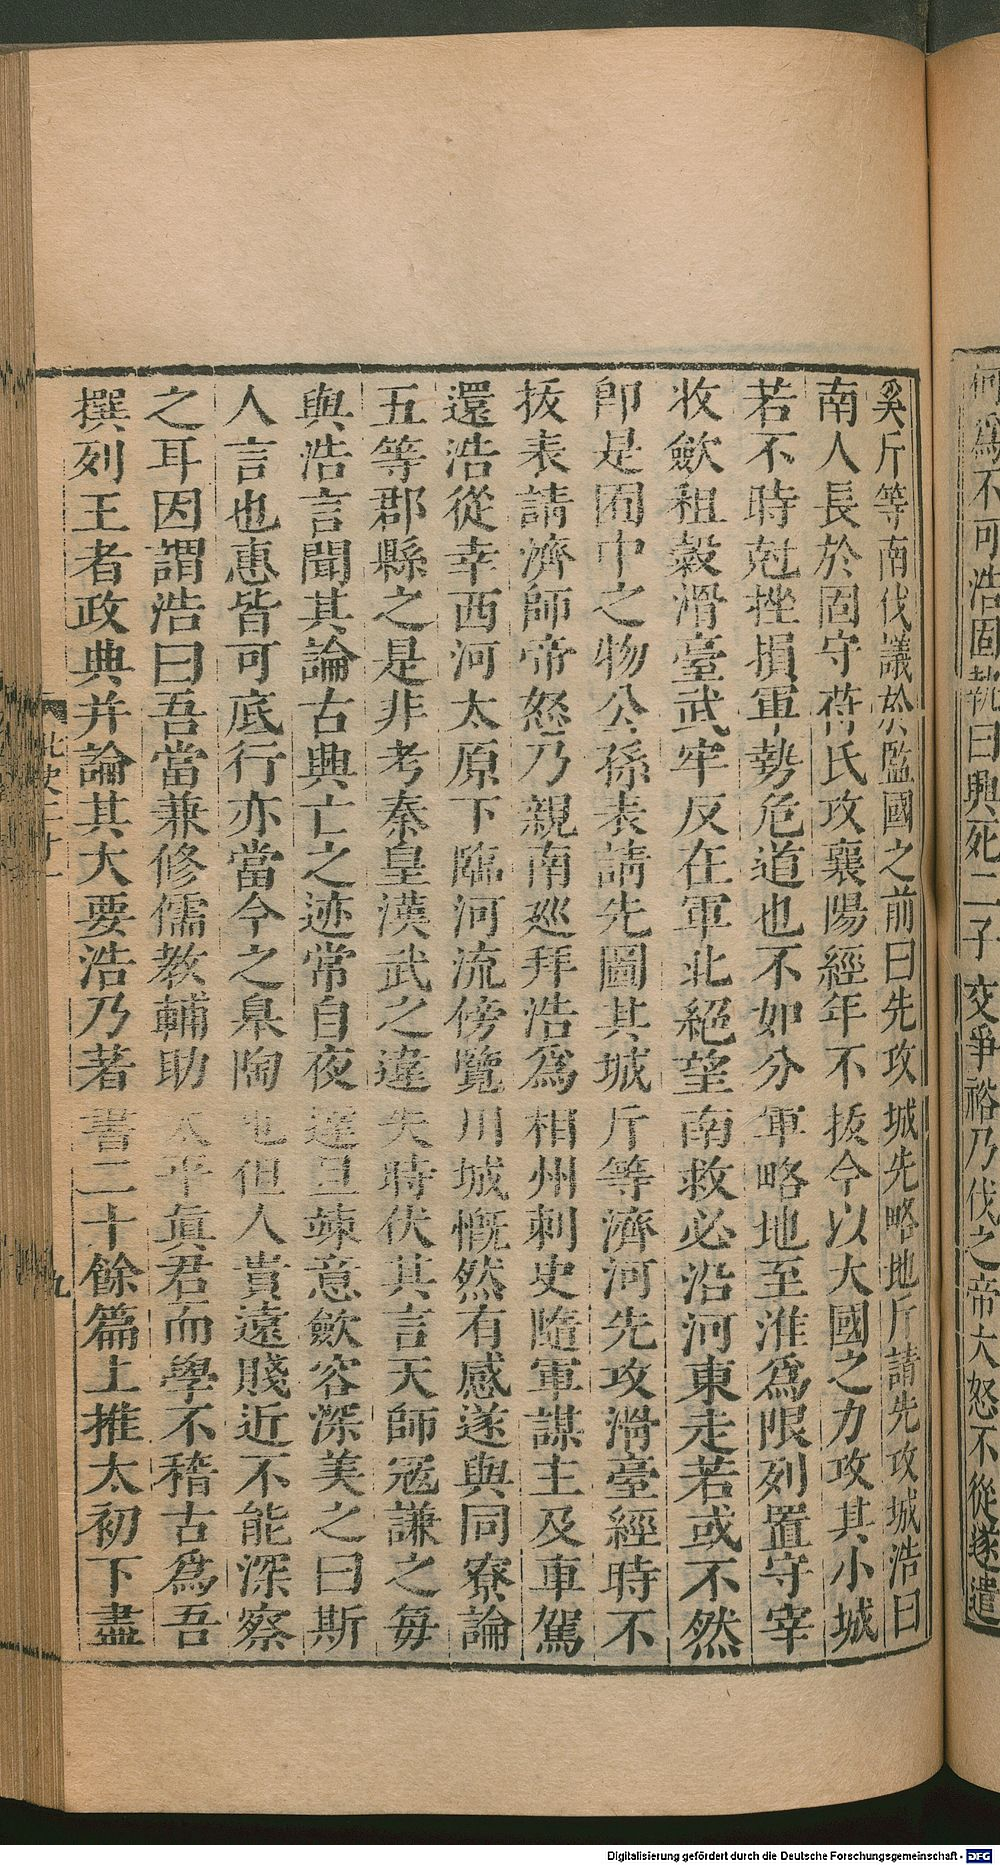 何爲不可浩固執曰興死二子交爭裕乃伐之帝大怒不從遂遣
奚斤等南伐議於監國之前曰先攻城先略地斤請先攻城浩曰
南人長於固守苻氏攻襄陽經年不拔今以大國之力攻其小城
若不時尅挫損軍勢危道也不如分軍略地至淮爲限列置守宰
收斂租穀滑臺武牢反在軍北絕望南救必沿河東走若或不然
卽是囿中之物公孫表請先圖其城斤等濟河先攻滑臺經時不
拔表請濟師帝怒乃親南廵拜浩爲相州刺史隨軍謀主及車駕
還浩從幸西河太原下臨河流傍覽川城慨然有感遂與同寮論
五等郡縣之是非考秦皇漢武之違失時伏其言天師寇謙之每
與浩言聞其論古興亡之迹常自夜達旦竦意歛容深美之曰斯
人言也惠皆可底行亦當今之臯陶也但人貴遠賤近不能深察
之耳因謂浩曰吾當兼修儒教輔助太平眞君而學不稽古爲吾
撰列王者政典并論其大要浩乃著書二十餘篇上推太初下盡
北史二十一
九
Digitalisierung gefördert durch die Deutsche Forschungsgemeinschaft - DFG